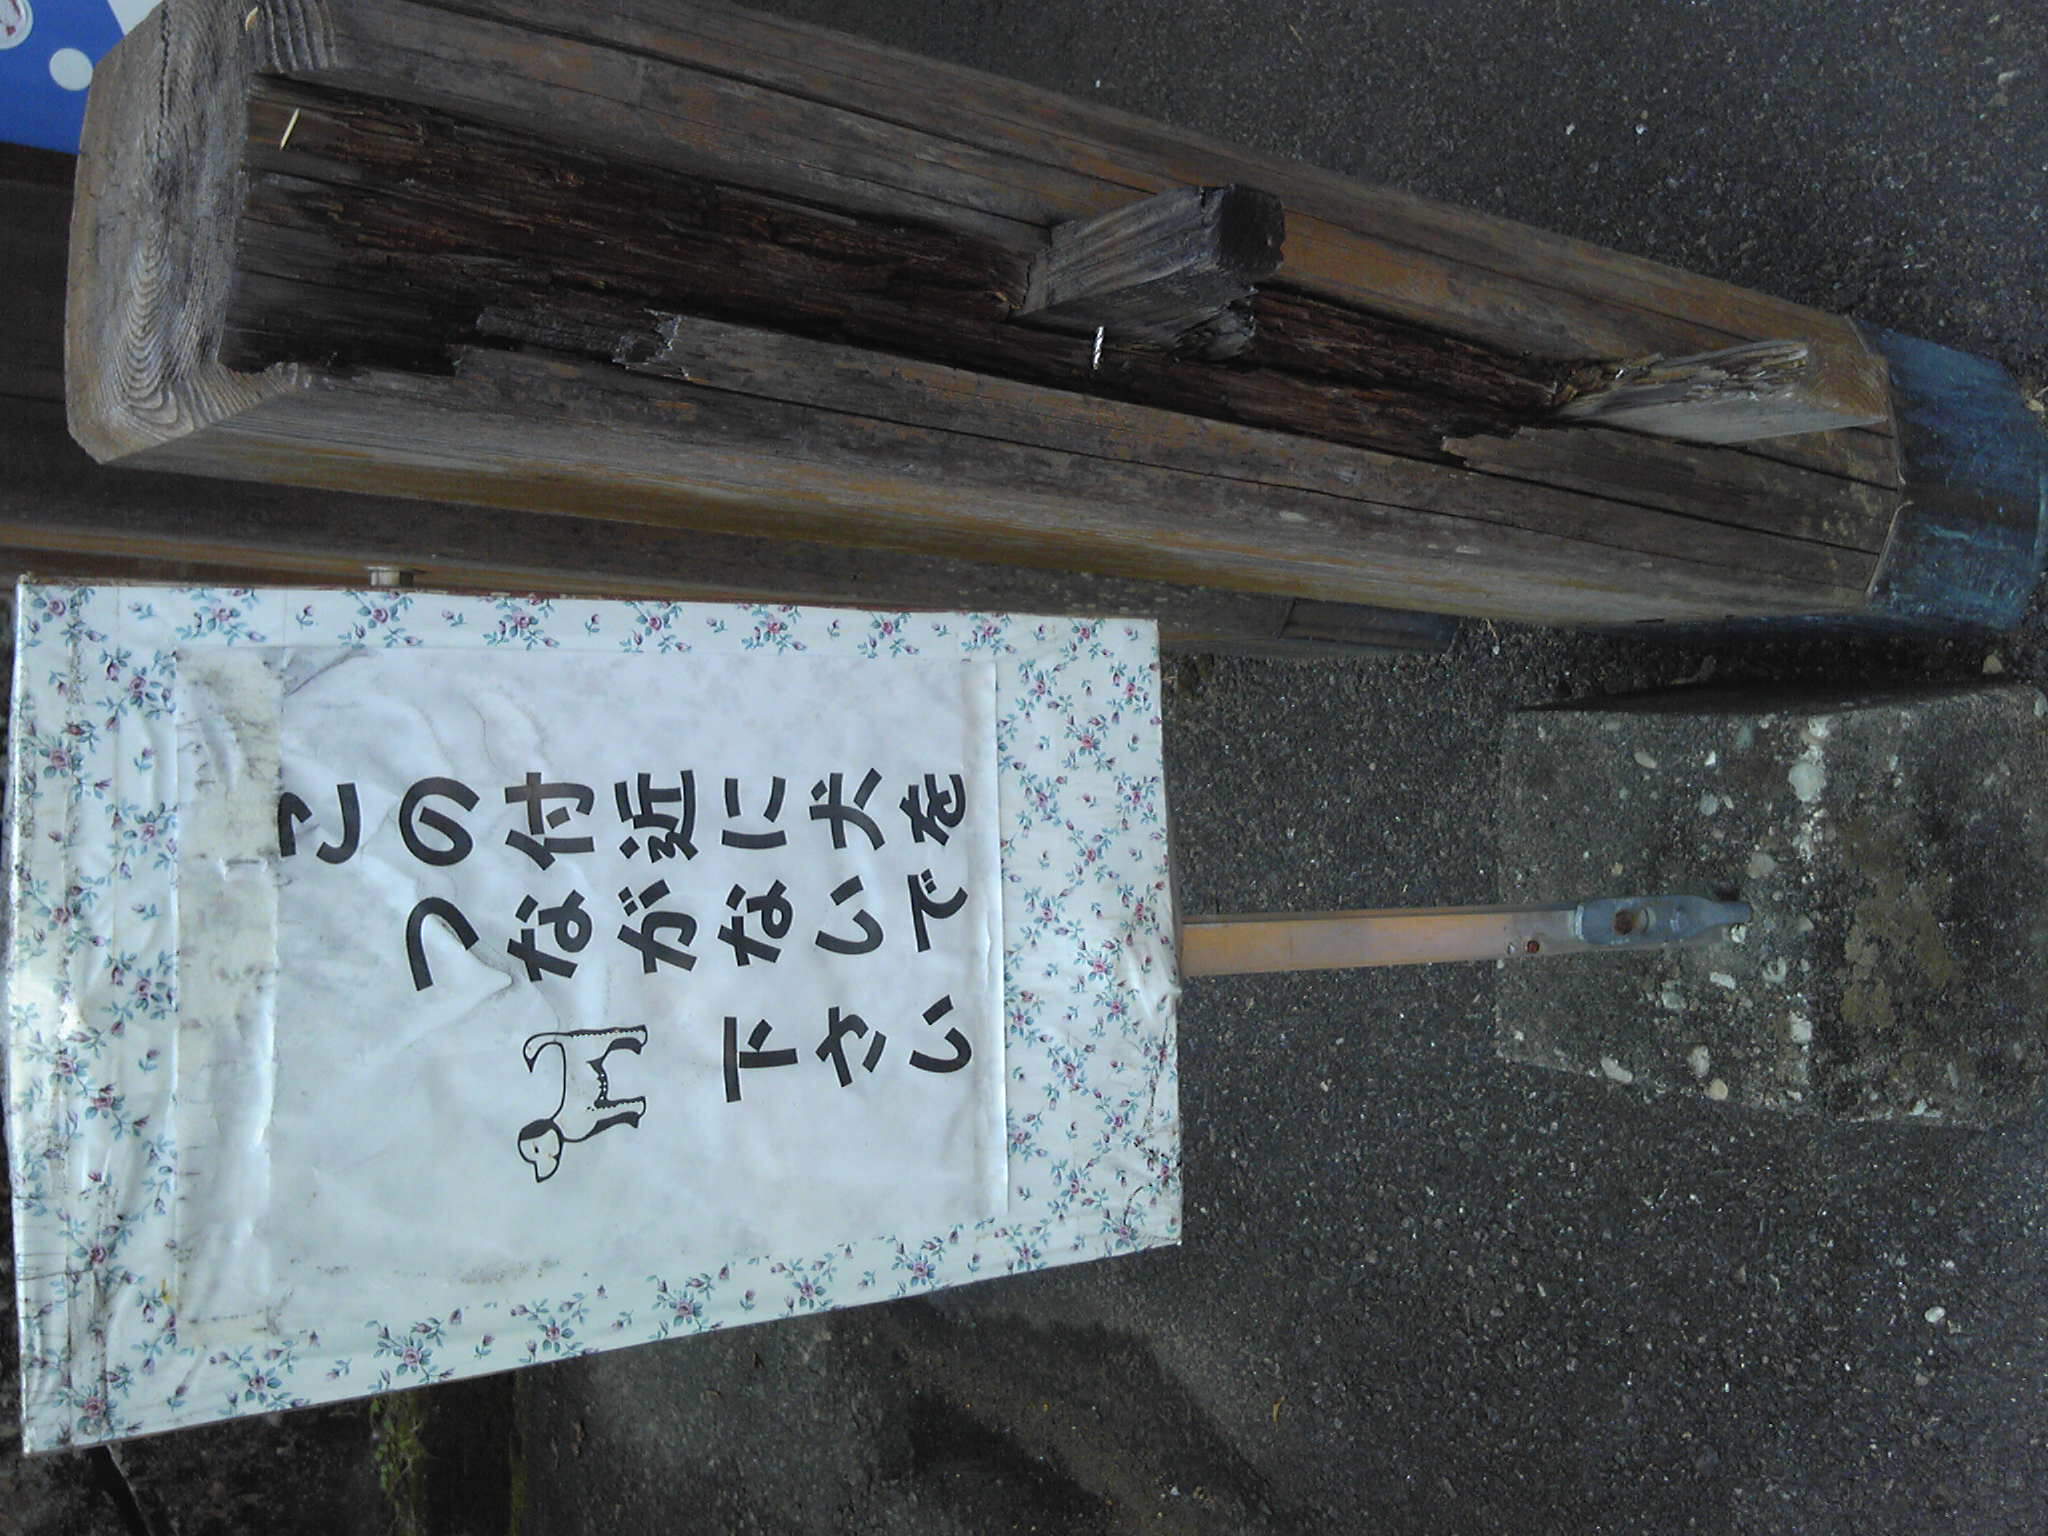 この付近に犬を
つながないで
下さい